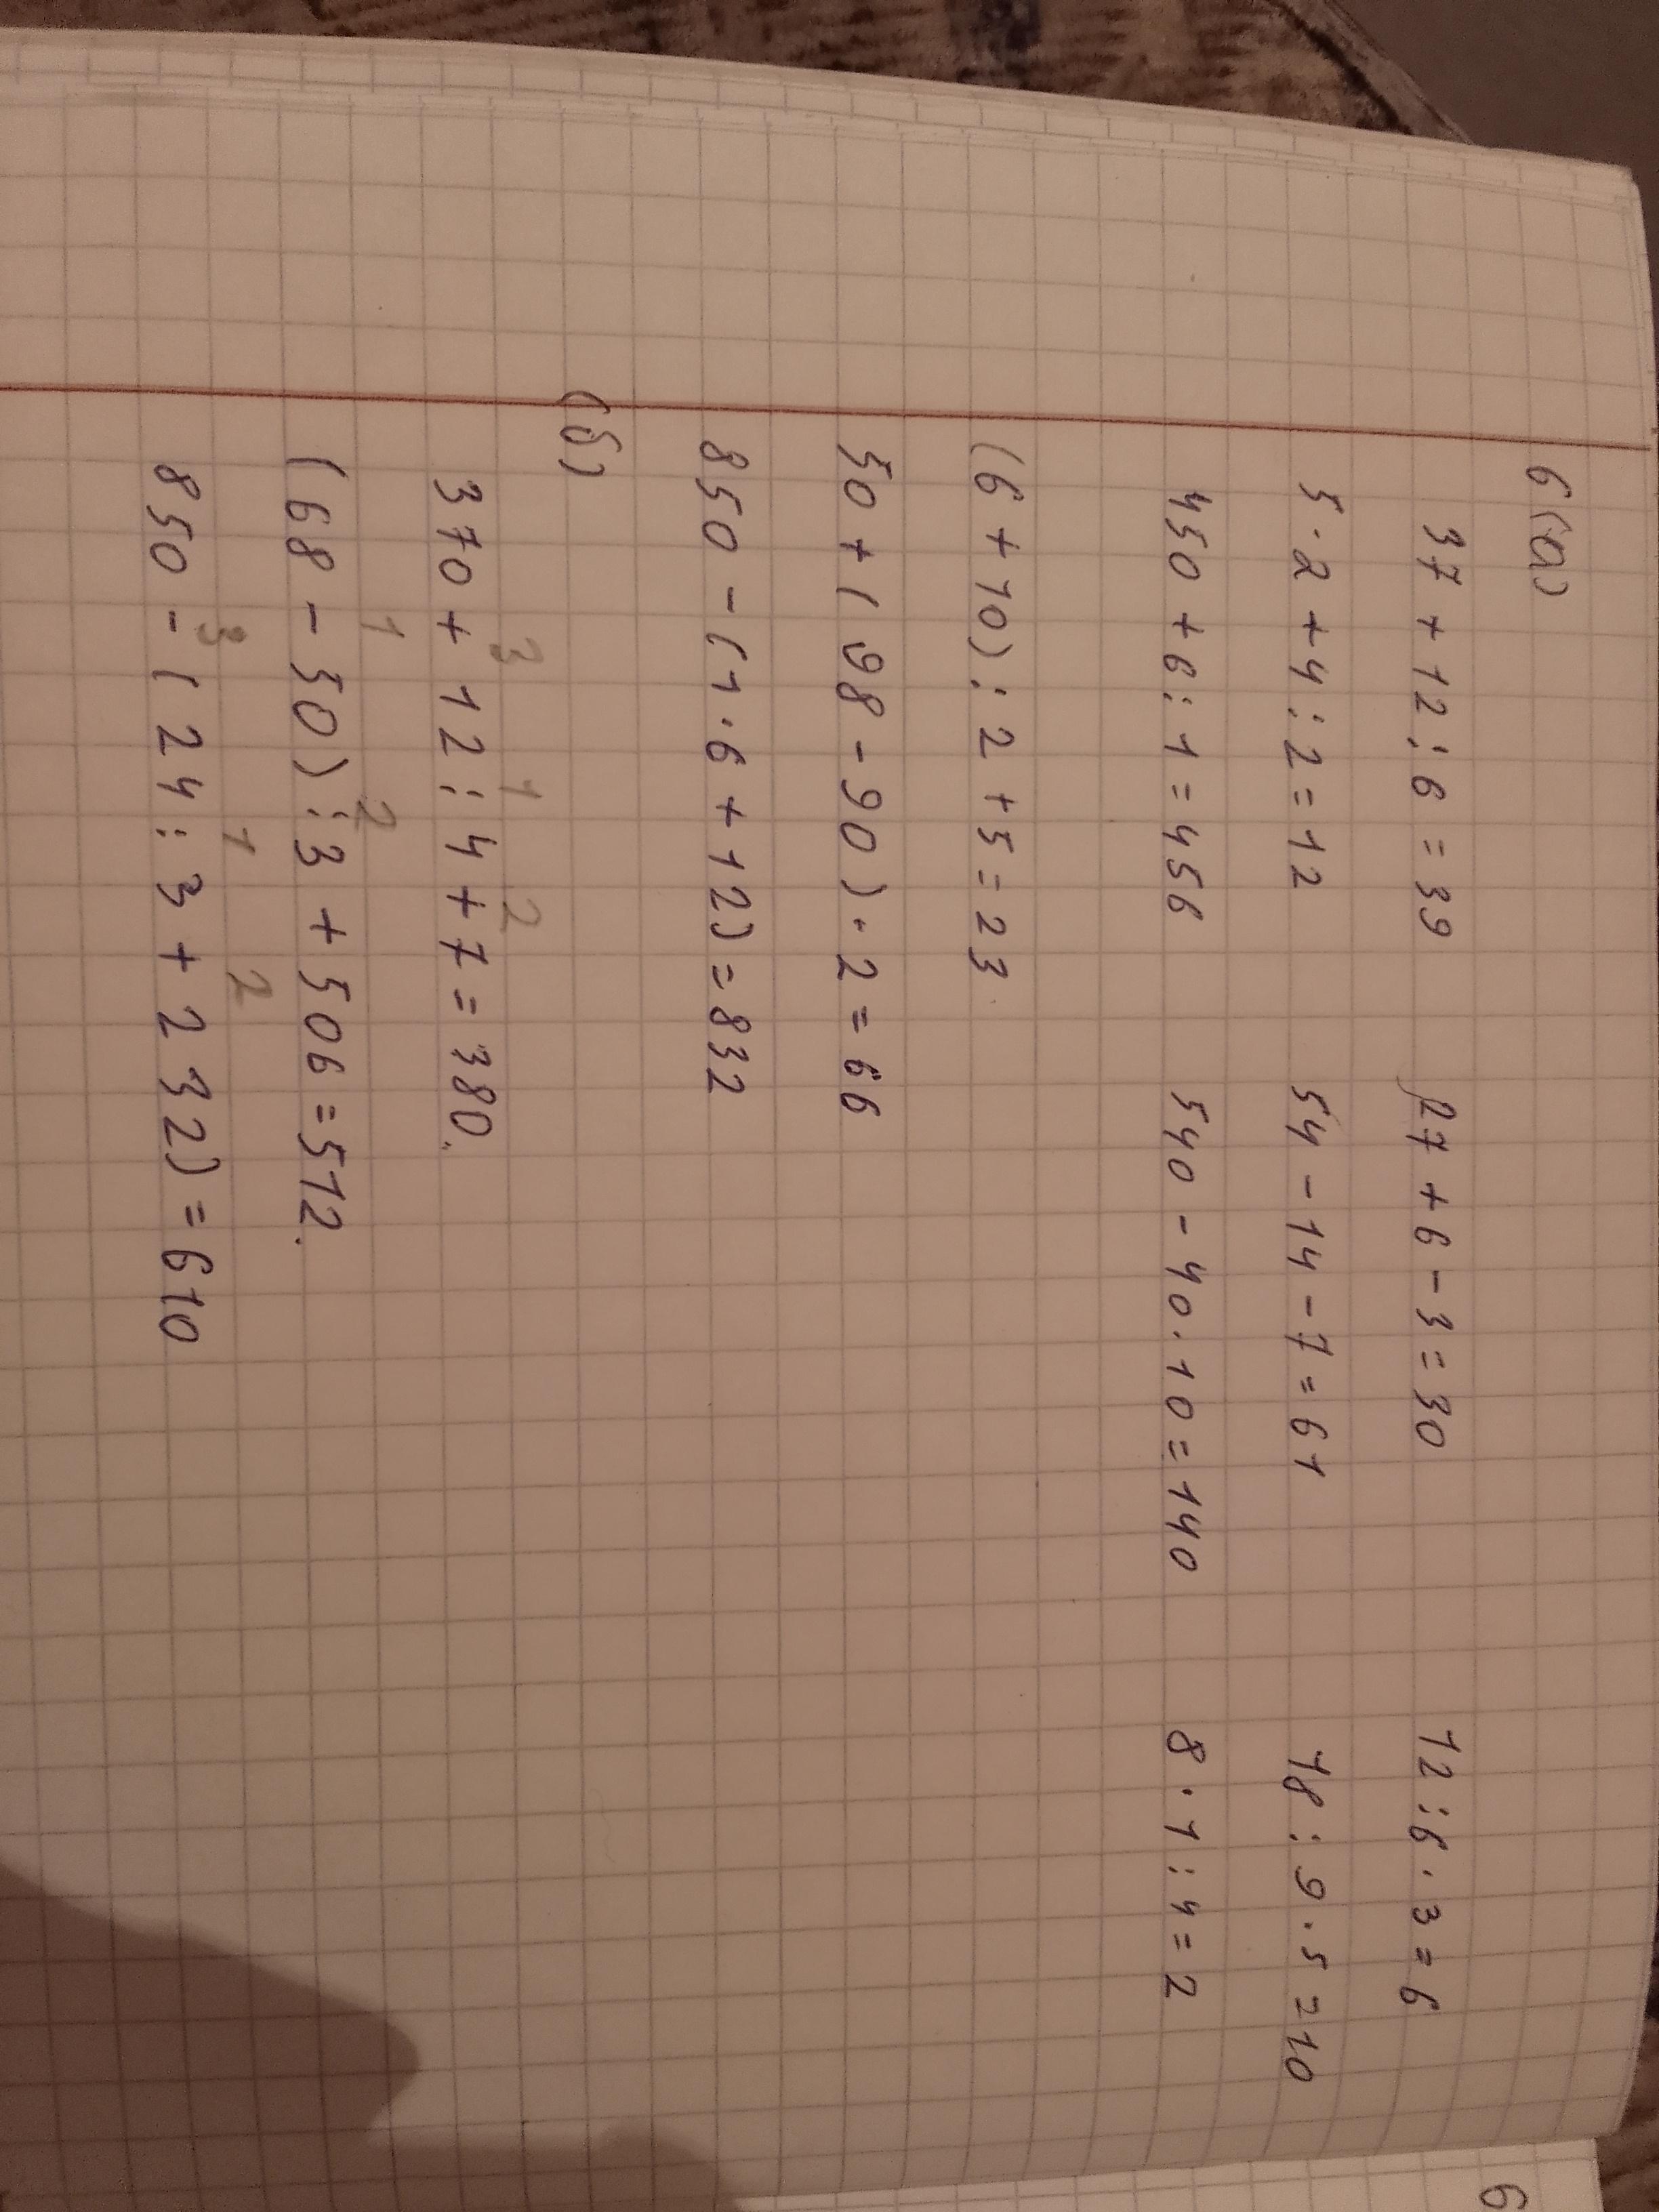 6(а)
37 + 12 : 6 = 39 27 + 6 - 3 = 30 12 : 6 · 3 = 6
5 · 2 + 4 : 2 = 12 54 - 14 - 7 = 61 18 : 9 · 5 = 10
450 + 6 : 1 = 456 540 - 40 · 10 = 140 8 · 1 : 4 = 2
(6 + 10) : 2 + 5 = 23
50 + (98 - 90) · 2 = 66
850 - (1 · 6 + 12) = 832
(б)
3 1 2
370 + 12 : 4 + 7 = 380.
1 2
(68 - 50) : 3 + 506 = 512.
3 1 2
850 - (24 : 3 + 232) = 610
6